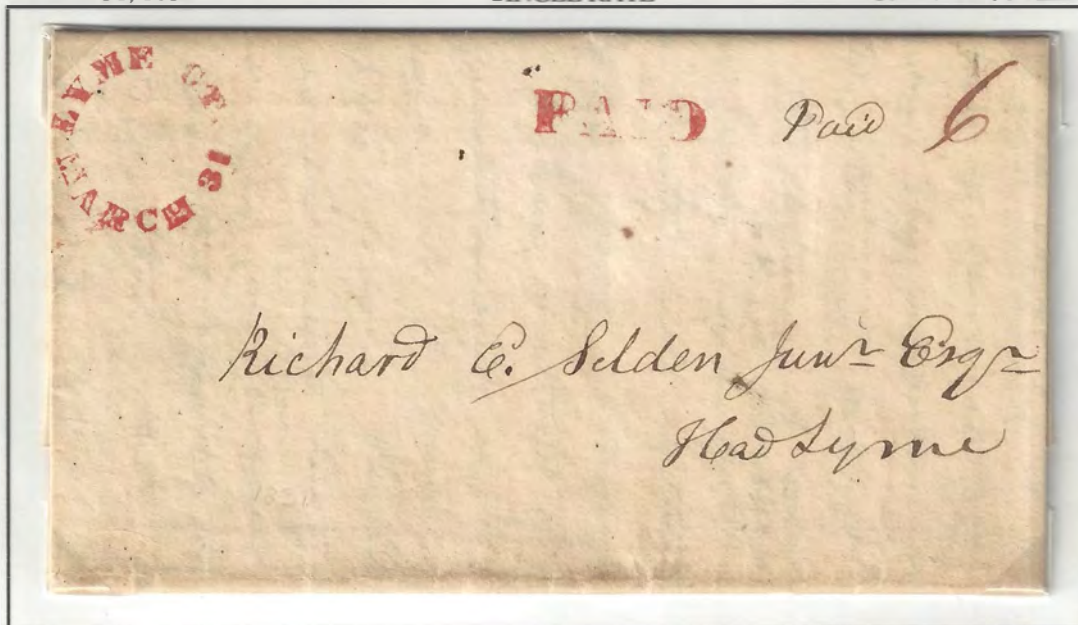 LYME CT.
MARCH 31
PAID Paid 6
Richard E. Selden Junr Esqr
Had Lyme